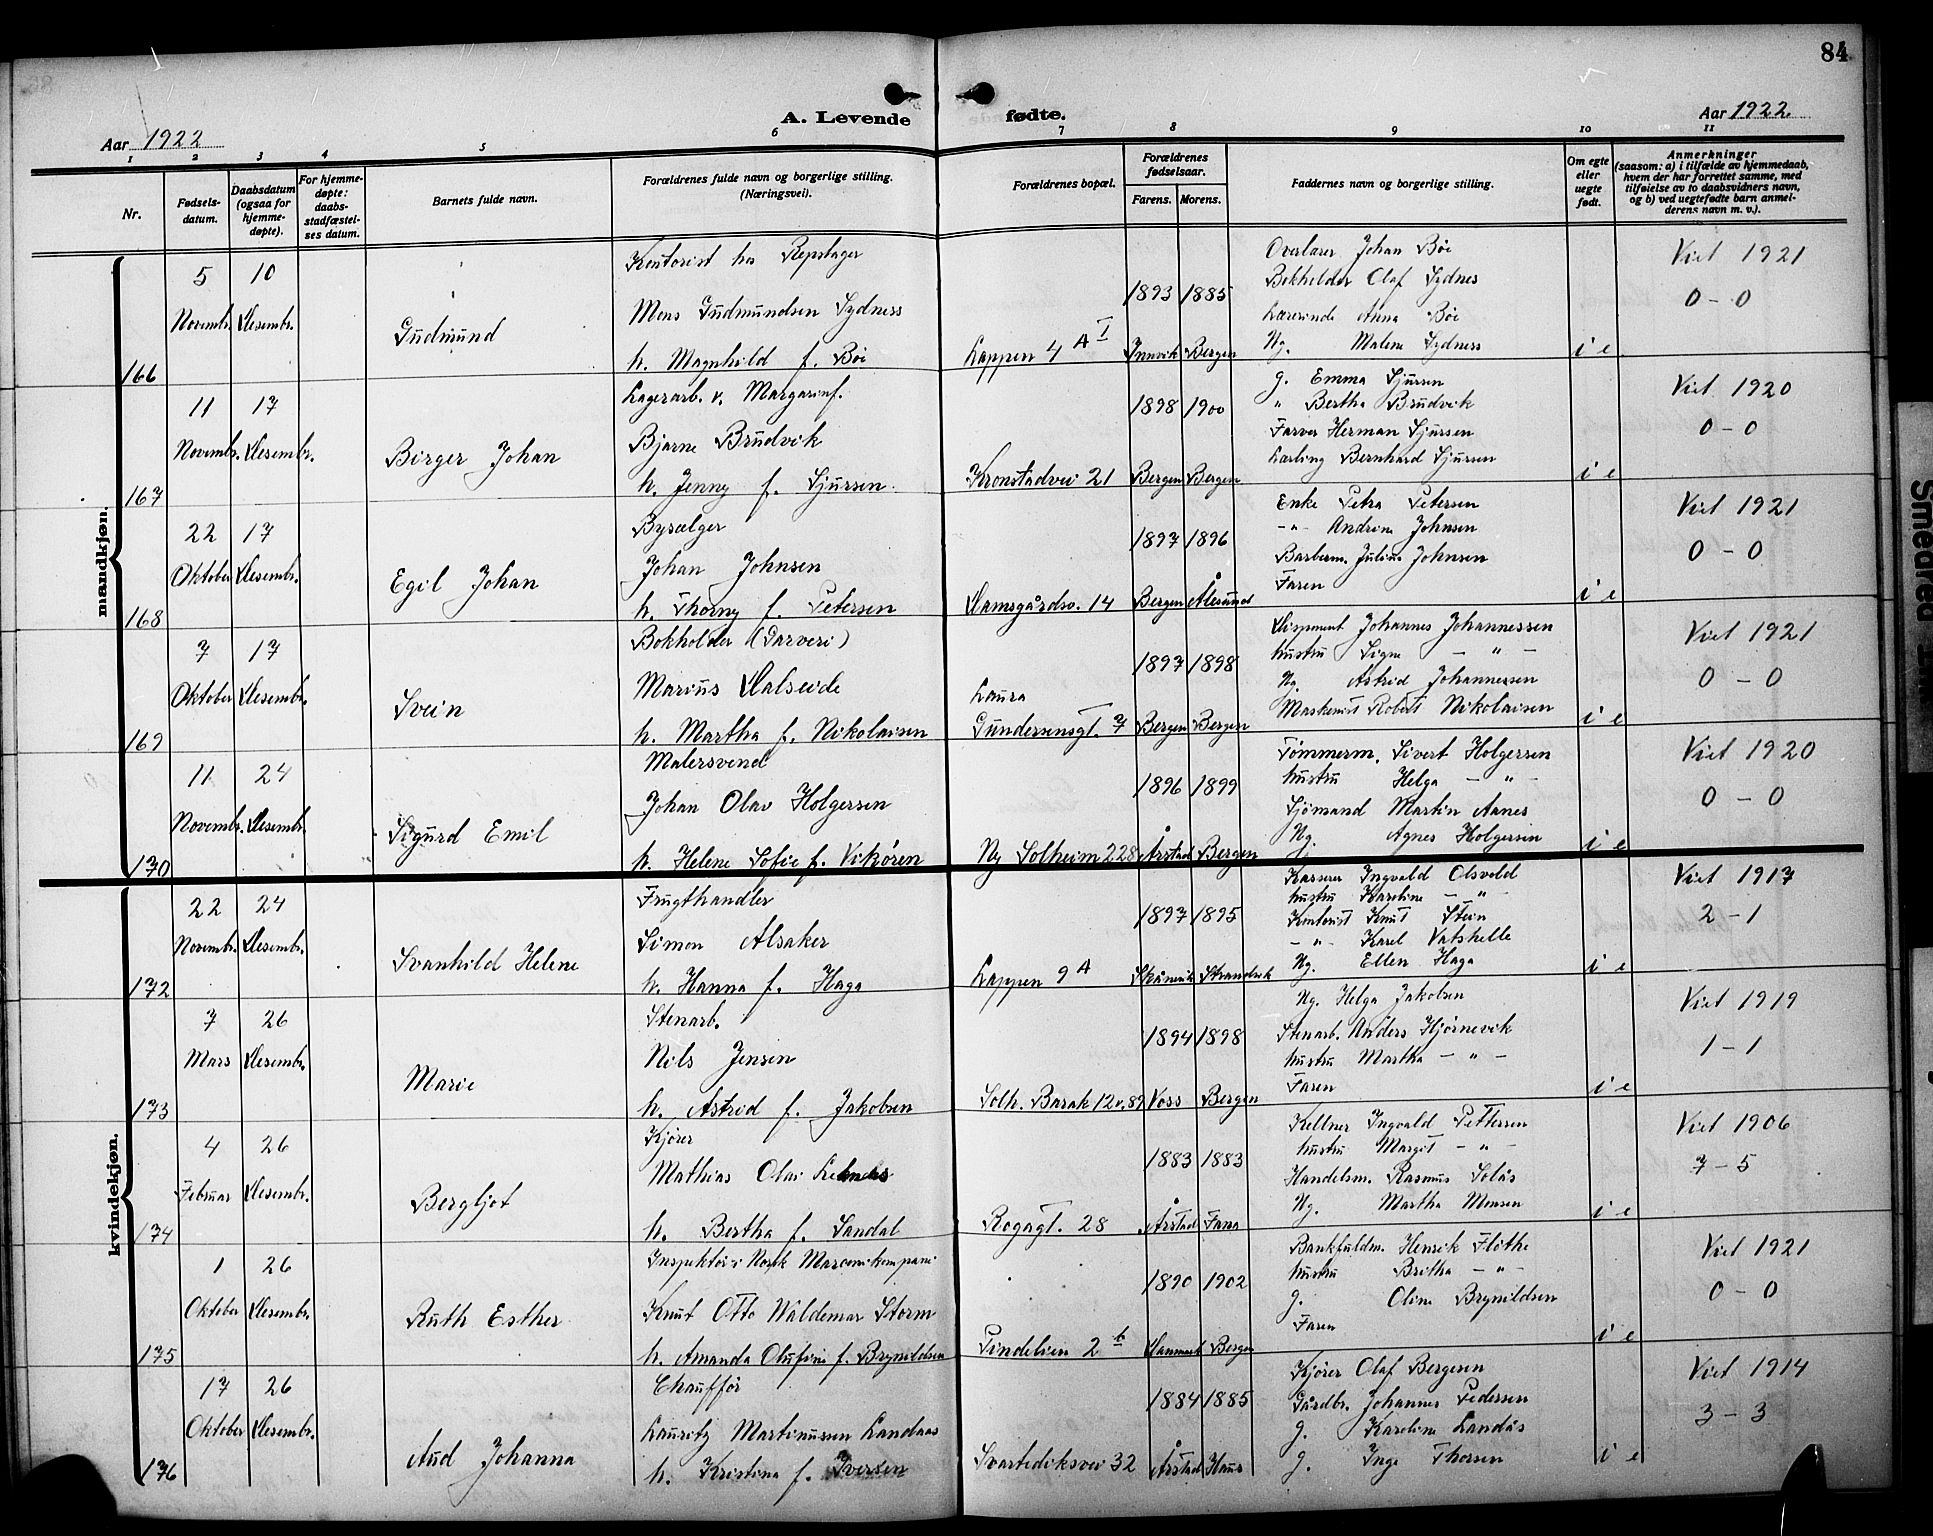 84
A. Levende fødte.
Aar 1922
Aar 1922.
1 2 3 4 5 6 7 8 9 10 11
Nr.
Fødsels-
datum.
Daabsdatum
(ogsaa for
hjemme-
døpte).
For hjemme-
døpte:
daabs-
stadfæstel-
ses datum.
Barnets fulde navn.
Forældrenes fulde navn og borgerlige stilling.
(Næringsvei).
Forældrenes bopæl.
Forældrenes
fødselsaar.
Farens. Morens.
Faddernes navn og borgerlige stilling.
Om egte
eller
uegte
født.
Anmerkninger
(saasom: a) i tilfælde av hjemmedaab,
hvem der har forrettet samme, med
tilføielse av to daabsvidners navn,
og b) ved uegtefødte barn anmel-
derens navn m. v.).
mandkjøn.
166
5 Novembr.
10 Desembr.
Gudmund
Kontorist hos Repslager
Mons Gudmundsen Sydness
h. Magnhild f. Bøe
Lappen 4 A I
1893 1885
Innvik Bergen
Overlærer Johan Bøe
Bokholder Olaf Sydnes
Lærerinde Anna Bøe
Ug. Malene Sydness
i e
Viet 1921
0 - 0
167
11 Novembr.
17 Desembr.
Birger Johan
Lagerarb. v. Margarinf.
Bjarne Brudvik
h. Jenny f. Sjursen.
Kronstadvei 21
1898 1900
Bergen Bergen
g. Emma Sjursen
" Bertha Brudvik
Farver Herman Sjursen
Lærling Bernhard Sjursen
i e
Viet 1920
0 - 0
168
22 Oktober
17 Desembr.
Egil Johan
Bysælger
Johan Johnsen
h. Thorny f. Petersen
Damsgårdsv. 14
1897 1896
Bergen Ålesund
Enke Petra Petersen
- " - Andrine Johnsen
Barberm. Julius Johnsen
Faren
i e
Viet 1921
0 - 0
169
7 Oktober
17 Desembr.
Svein
Bokholder (Garveri)
Marius Dalseide
h. Martha f. Nikolaisen
Laura
Gundersensgt. 7
1897 1898
Bergen Bergen
Disponent Johannes Johannessen
hustru Signe - " -
Ug. Astrid Johannessen
Maskinist Robert Nikolaisen
i e
Viet 1921
0 - 0
170
11 Novembr.
24 Desembr.
Sigurd Emil
Malersvend
Johan Olav Holgersen
h. Helene Sofie f. Vikøren
Ny Solheim 228
1896 1899
Årstad Bergen
Tømmerm. Sivert Holgersen
hustru Helga - " -
Sjømand Martin Aanes
Ug. Agnes Holgersen
i e
Viet 1920
0 - 0
kvindekjøn.
172
22 Novembr.
24 Desembr.
Svanhild Helene
Frugthandler
Simon Alsaker
h. Hanna f. Haga
Lappen 9 A
1897 1895
Skånevik Strandvik
Kasserer Ingvald Olsvold
hustru Karoline - " -
Kontorist Knut Stein
- " - Karel Vatshelle
Ug. Ellen Haga
i e
Viet 1917
2 - 1
173
7 Mars
26 Desembr.
Marie
Stenarb.
Nils Jensen
h. Astrid f. Jakobsen
Solh. Barak 12 v. 89
1894 1898
Voss Bergen
Ug. Helga Jakobsen
Stenarb. Anders Hjørnevik
hustru Martha - " -
Faren
i e
Viet 1919
1 - 1
174
4 Februar
26 Desembr.
Bergljot
Kjører
Mathias Olai
h. Bertha f. Sandal
Rogagt. 28
1883 1883
Årstad Fana
Kellner Ingvald Pettersen
hustru Margit - " -
Handelsm. Rasmus Solås
Ug. Martha Monsen
i e
Viet 1906
7 - 5
175
1 Oktober
26 Desembr.
Ruth Esther
Inspektør i Norsk Marconikompani
Knut Otto Waldemar Storm
h. Amanda Olufine f. Brynildsen
Tindelien 2 b
1890 1902
Danmark Bergen
Bankfuldm. Henrik Fløthe
hustru Britha - " -
g. Oline Brynildsen
Faren
i e
Viet 1921
0 - 0
176
17 Oktober
26 Desembr.
Aud Johanna
Chauffør
Lauritz Martinusen Landaas
h. Kristina f. Iversen
Svartediksvei 32
1884 1885
Årstad Haus
Kjører Olaf Bergesen
Gårdbr. Johannes Pedersen
g. Karoline Landås
g. Inga Thorsen
i e
Viet 1914
3 - 3